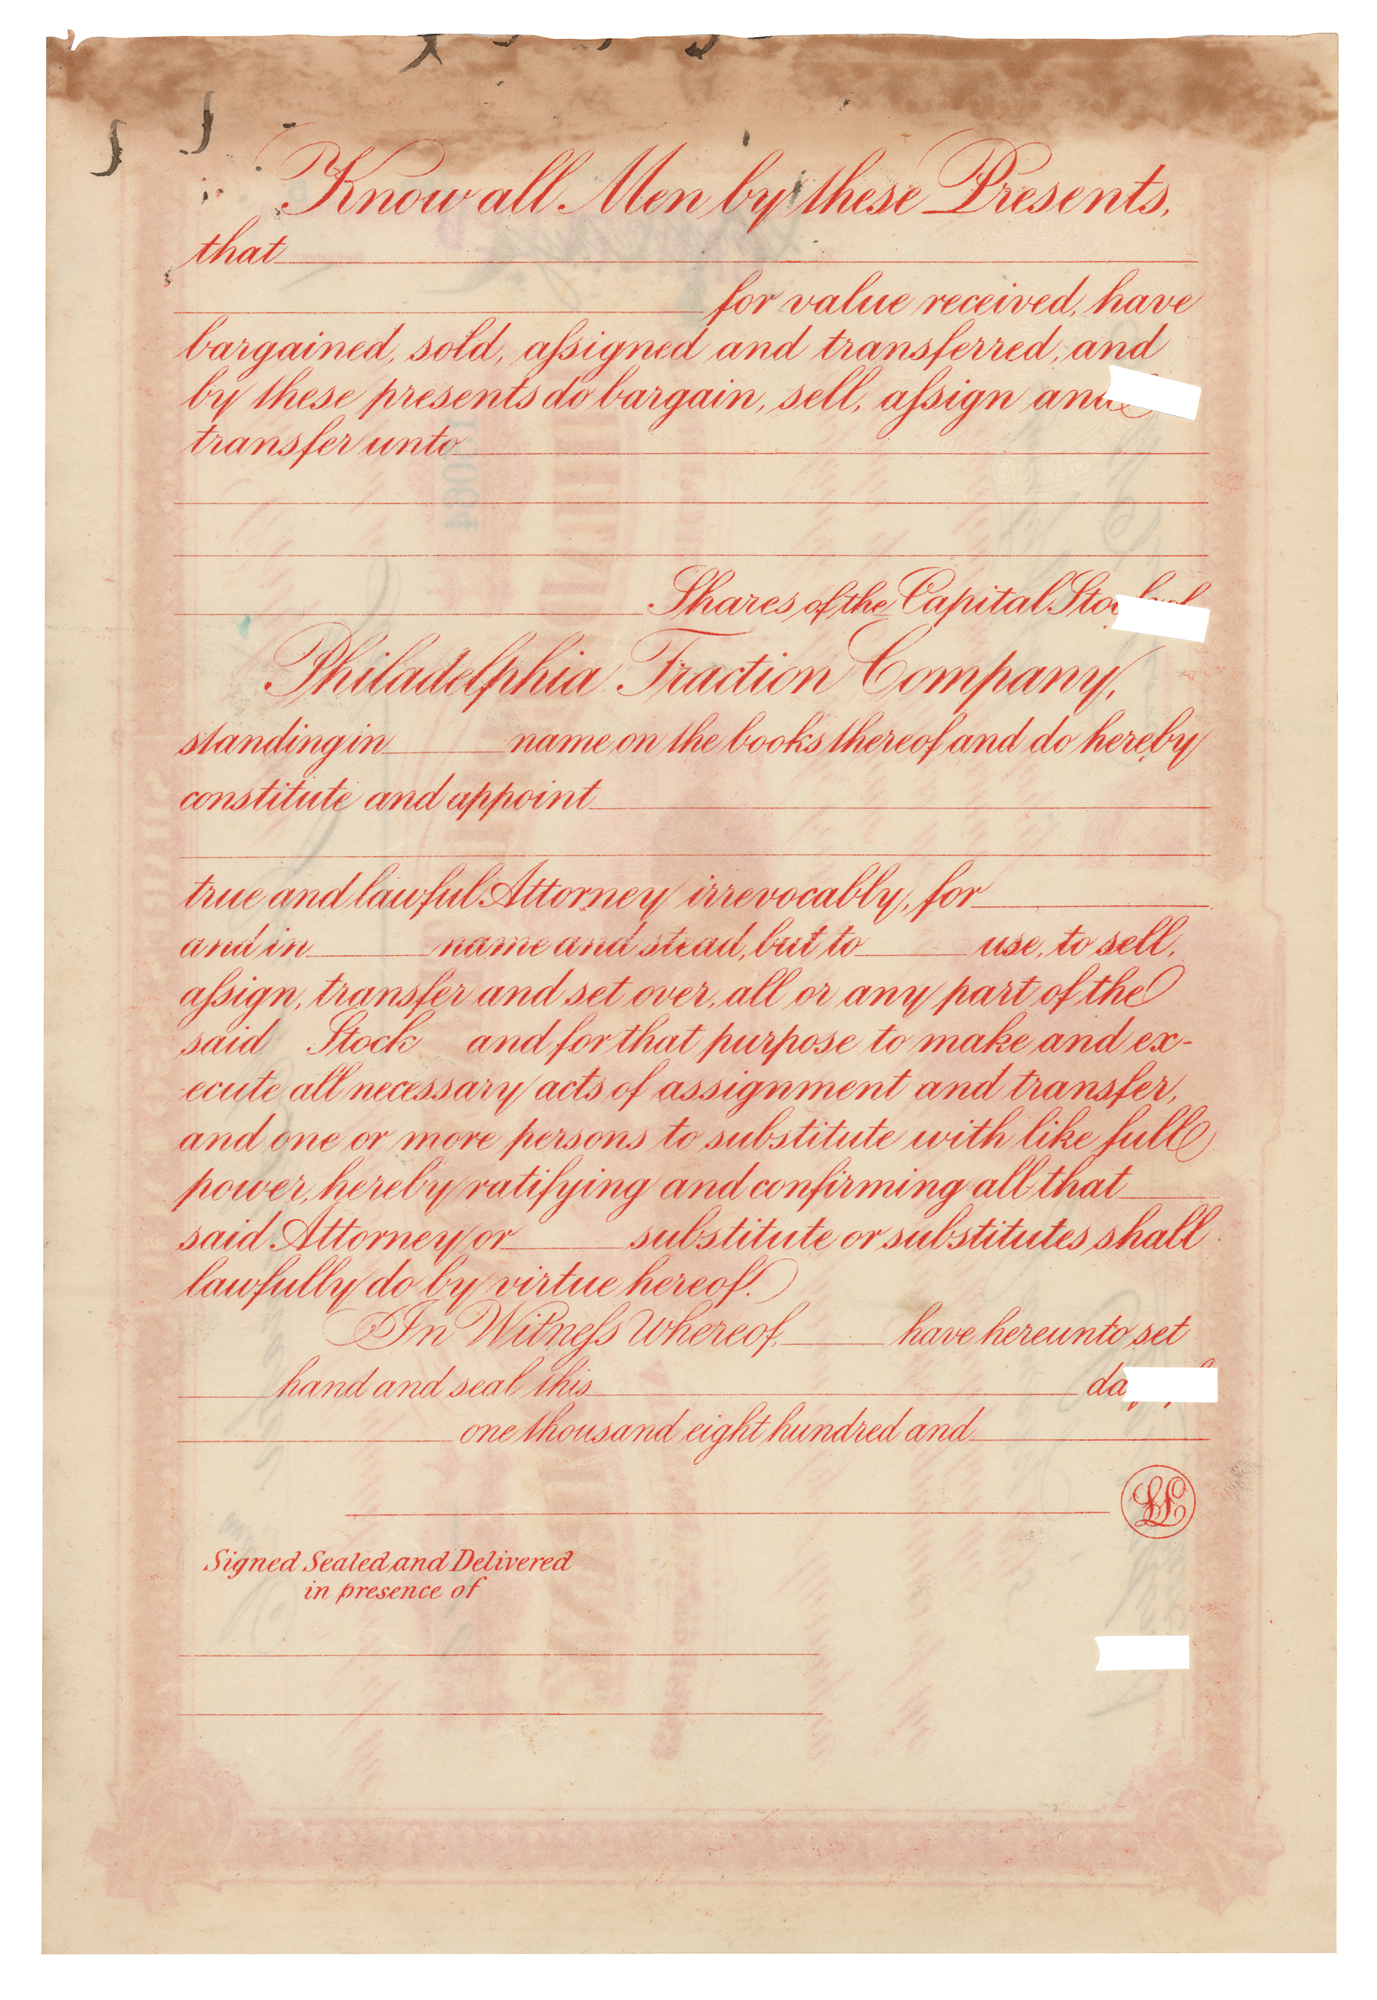 Know all Men by these Presents,
that
for value received, have
bargained, sold, aſsigned and transferred, and
by these presents do bargain, sell, aſsign and
transfer unto
Shares of the Capital Stock of
Philadelphia Traction Company,
standing in name on the books thereof and do hereby
constitute and appoint
true and lawful Attorney irrevocably, for
and in name and stead, but to use, to sell,
aſsign, transfer and set over, all or any part of the
said Stock and for that purpose to make and ex-
ecute all necessary acts of assignment and transfer,
and one or more persons to substitute with like full
power, hereby ratifying and confirming all that
said Attorney or substitute or substitutes shall
lawfully do by virtue hereof.
In Witneſs Whereof, have hereunto set
hand and seal this
one thousand eight hundred and
LS
Signed Sealed and Delivered
in presence of